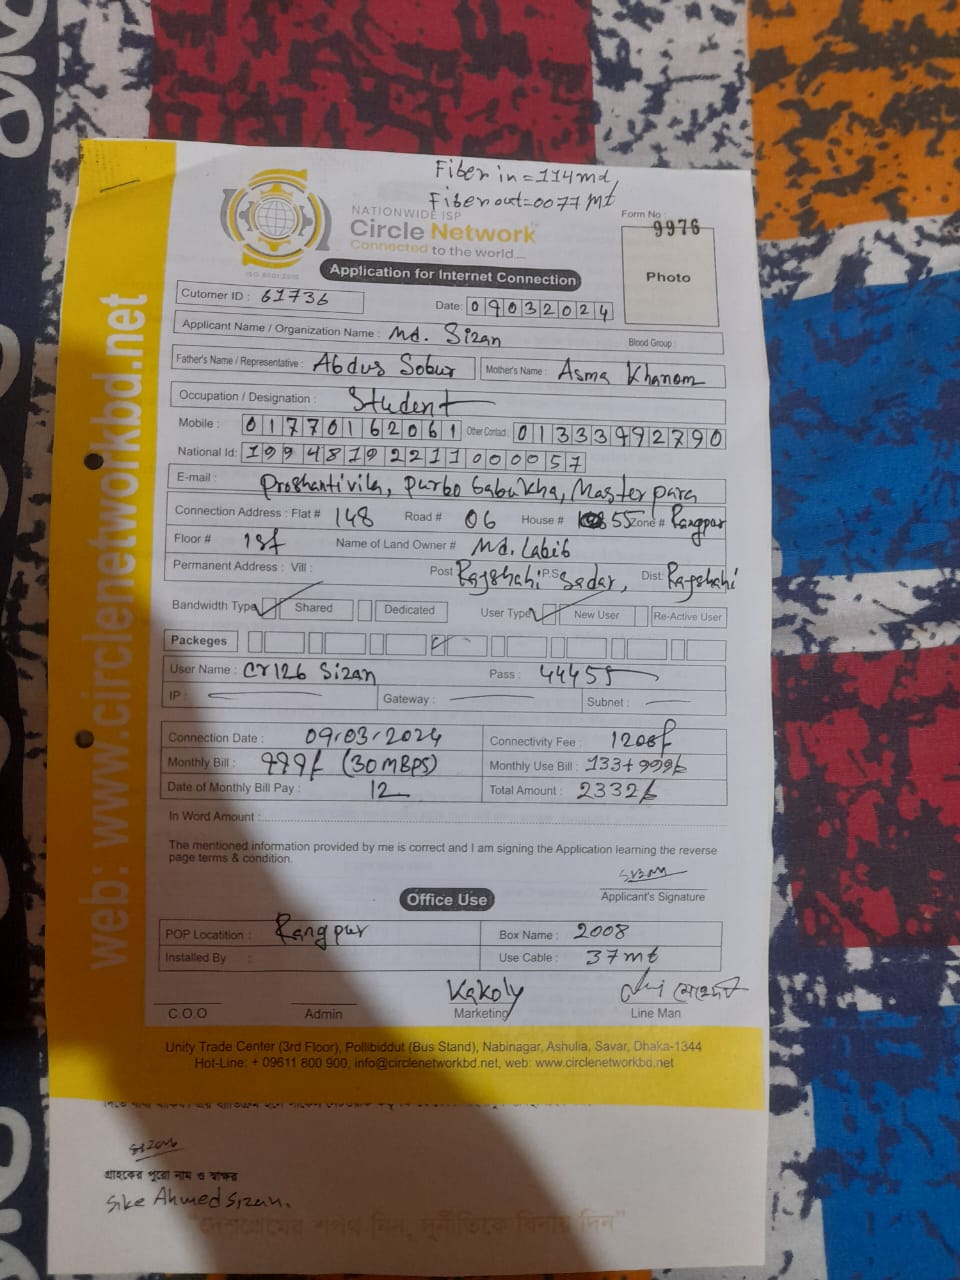 Fiber in = 114 md
Fiber out=0077 Mt
Form No :
9976
NATIONWIDE ISP
Circle Network
Connected to the world....
ISO 9001:2015
Photo
Application for Internet Connection
Cutomer ID : 61736
Date: 09032024
Applicant Name / Organization Name : Md. Sizan Blood Group :
Father's Name / Representative : Abdus Sobur Mother's Name : Asma Khanom
Occupation / Designation : Student
Mobile : 01770162061 Other Contact : 01333992790
National Id: 19948192211000057
E-mail : Proshantivila, Purbo Gabukha, Master para
Connection Address : Flat # 148 Road # 06 House # 55 Zone # Rangpur
Floor # 1st Name of Land Owner # Md. Labib
Permanent Address : Vill : Post Rajshahi P.S Sadar, Dist: Rajshahi
Bandwidth Type Shared Dedicated User Type New User Re-Active User
Packeges
User Name : Cr126 Sizan Pass : 44455
IP : Gateway : Subnet :
Connection Date : 09.03.2024 Connectivity Fee : 1200/
Monthly Bill : 999/ (30 MBPS) Monthly Use Bill : 133+999/
Date of Monthly Bill Pay : 12 Total Amount : 2332/
In Word Amount :
The mentioned information provided by me is correct and I am signing the Application learning the reverse
page terms & condition.
Sizan
Applicant's Signature
Office Use
POP Locatition : Rangpur Box Name : 2008
Installed By : Use Cable : 37 mt
Kakoly
C.O.O Admin Marketing Line Man
Unity Trade Center (3rd Floor), Pollibiddut (Bus Stand), Nabinagar, Ashulia, Savar, Dhaka-1344
Hot-Line: + 09611 800 900, info@circlenetworkbd.net, web: www.circlenetworkbd.net
web: www.circlenetworkbd.net
গ্রাহকের পুরো নাম ও স্বাক্ষর
Sike Ahmed Sizan.
"দেশপ্রেমের শপথ নিন, দুর্নীতিকে বিদায় দিন"